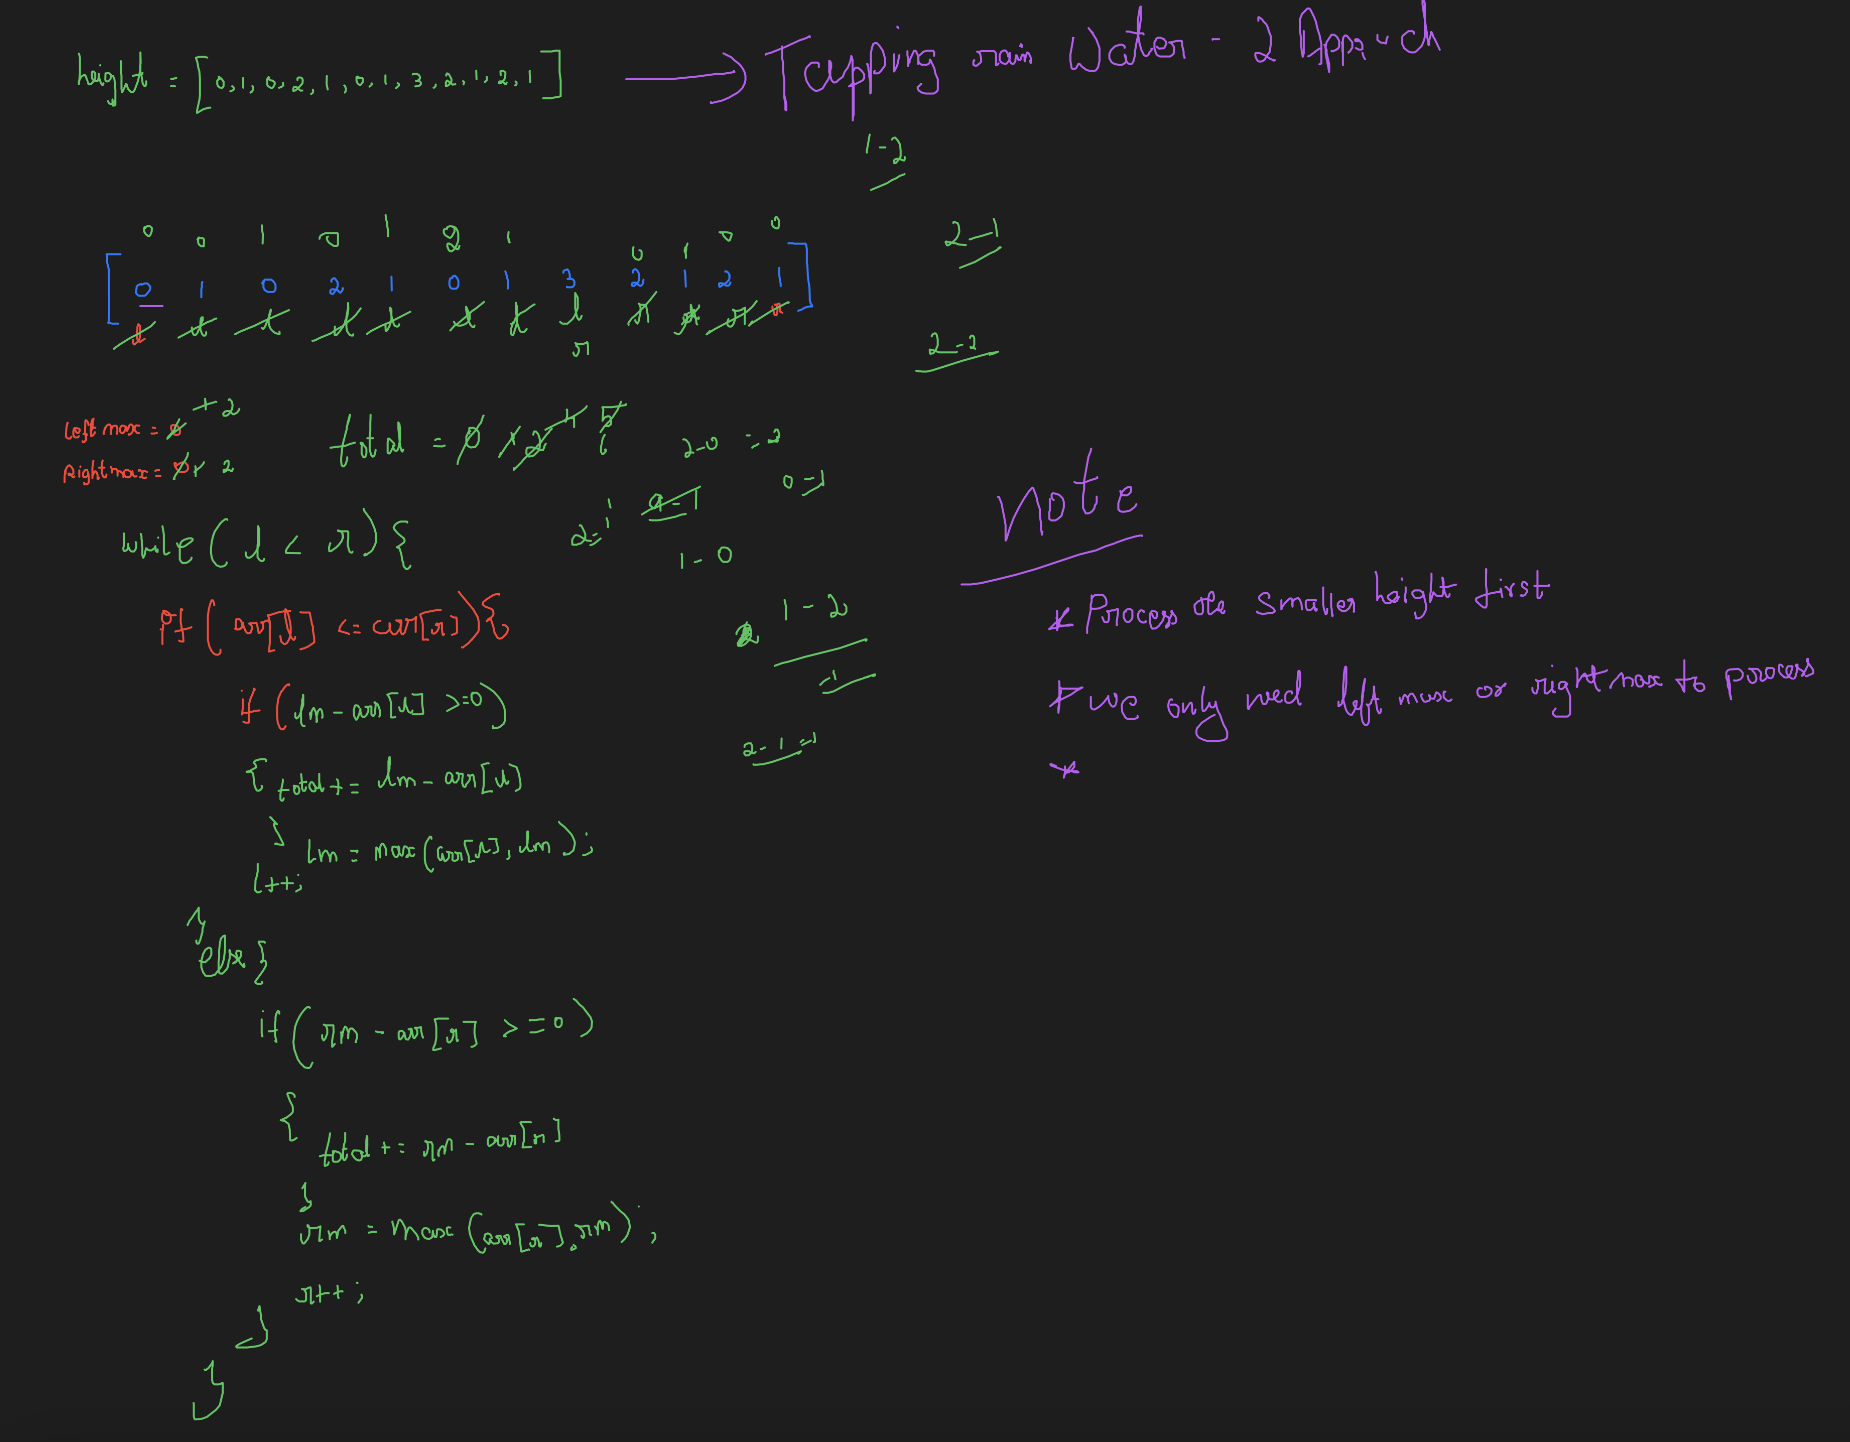 height = [0,1,0,2,1,0,1,3,2,1,2,1] → Tapping rain Water - 2 Appr ch
1-2
0 0 1 0 1 2 1 0 1 0 0
2-1
[0 1 0 2 1 0 1 3 2 1 2 1]
l l l l l l l l r r r r
r
2-2
left max = 0 1 2
Right max = 0 1 2
total = 0 1 2 4 5 6
2-0 = 2
0-1
2=1
0-1
1-0
while (l < r) {
if (arr[l] <= arr[r]) {
1-2
2
-1
if (lm - arr[l] >=0)
{ total += lm - arr[l]
2-1=1
}
lm = max(arr[l], lm);
l++;
}
else {
if (rm - arr[r] >=0)
{
total += rm - arr[r]
}
rm = max(arr[r], rm);
r++;
}
}
Note
* Process the smaller height first
* we only need left max or right max to process
*